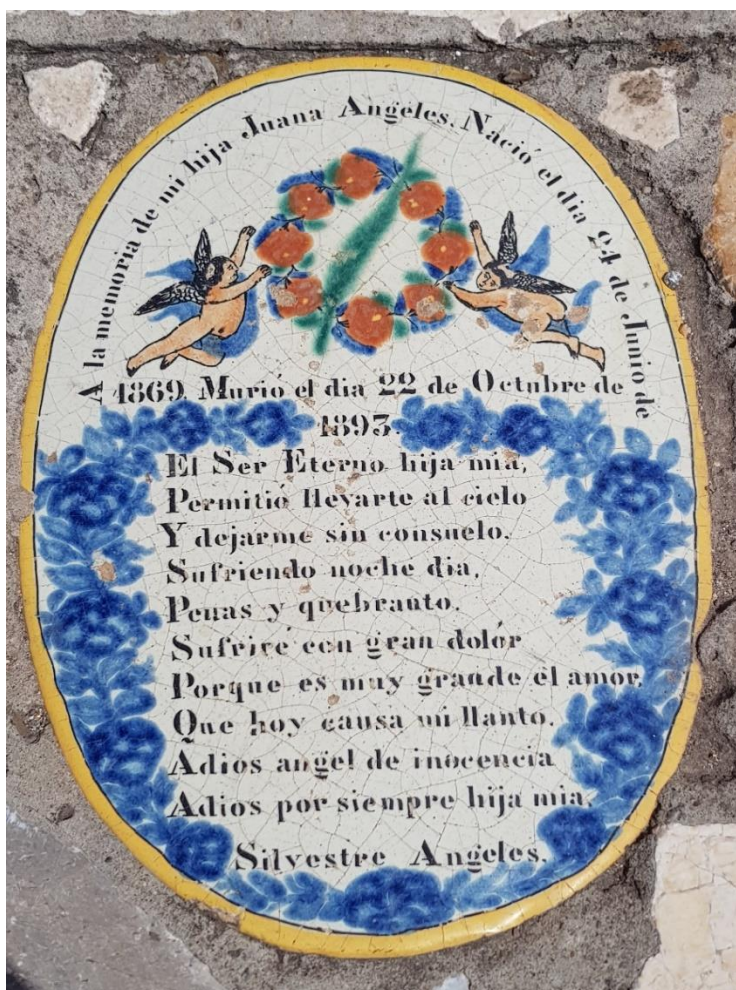 A la memoria de mi hija Juana Angeles. Nació el dia 24 de Junio de
1869. Murió el dia 22 de Octubre de
1893.
El Ser Eterno hija mia,
Permitió llevarte al cielo
Y dejarme sin consuelo.
Sufriendo noche dia,
Penas y quebranto.
Sufriré con gran dolór
Porque es muy grande el amor,
Que hoy causa mi llanto.
Adios angel de inocencia
Adios por siempre hija mia,
Silvestre Angeles.